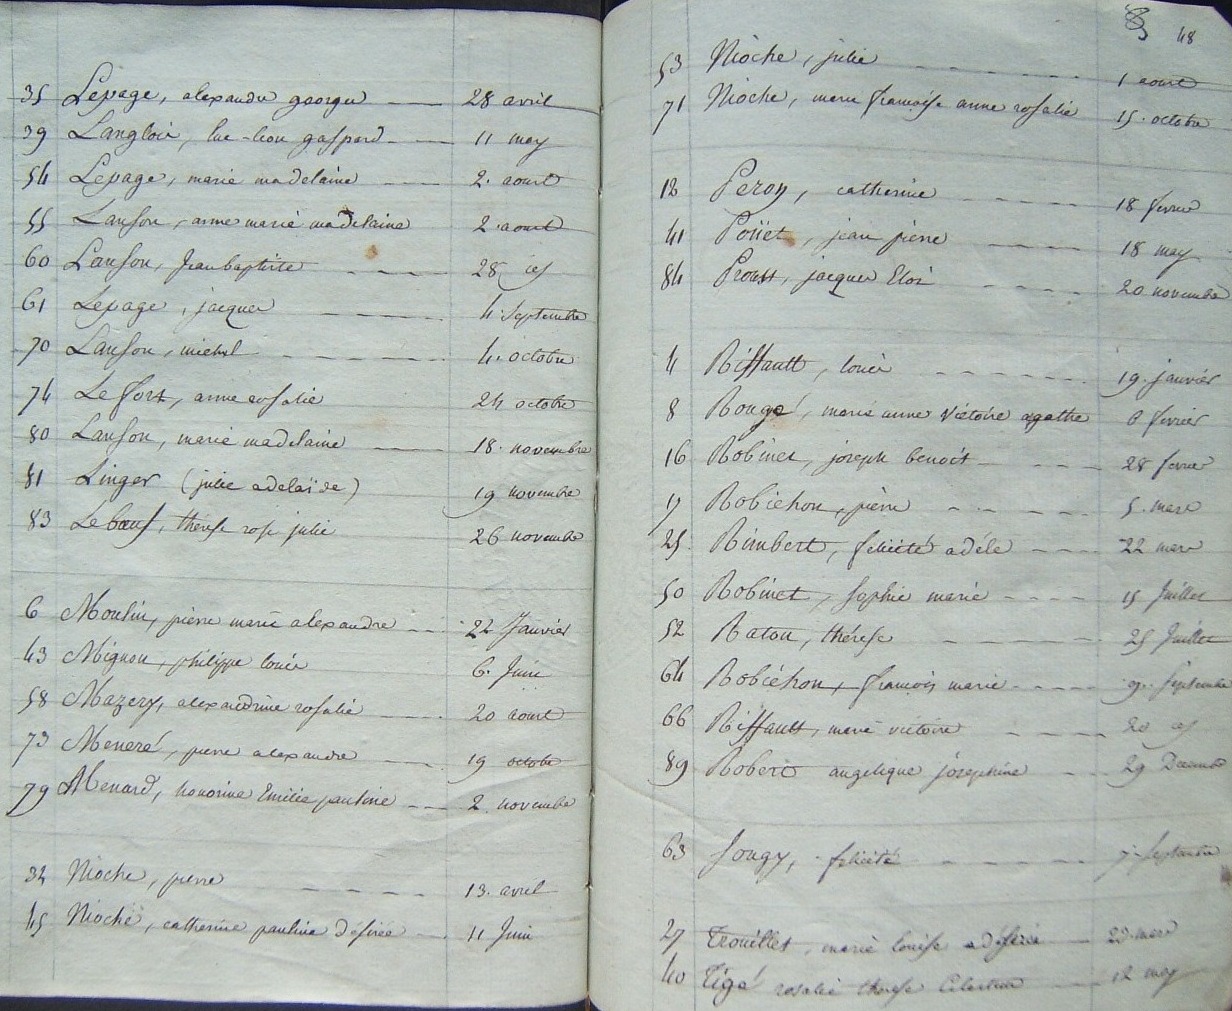 35 Lepage, alexandre george 28 avril
39 Langlois, luc-leon gaspard 11 may
54 Lepage, marie madelaine 2. aout
55 Lanson, anne marie madelaine 2. aout
60 Lanson, Jean baptiste 28
61 Lepage, jacques 4. Septembre
70 Lanson, michel 4. octobre
74 Le fort, anne rosalie 24 octobre
80 Lanson, marie madelaine 18. novembre
81 Linger (julie adelaïde) 19 novembre
83 Le bœuf, thérese rose julie 26 novembre
6 Moulin, pierre marie alexandre 22 Janvier
43 Mignon, philippe louis 6. Juin
58 Mazery, alexandrine rosalie 20 aout
73 Meneré, pierre alexandre 19 octobre
79 Menard, honorine Emilie pauline 2. novembre
32 Nioche, pierre 13. avril
45 Nioche, catherine pauline désirée 11 Juin
48
53 Nioche, julie 1 aout
71 Nioche, marie françoise anne rosalie 15. octobre
12 Peron, catherine 18 fevrier
41 Poüet, jean pierre 18 may
84 Proust, jacques Eloi 20 novembre
4 Riffault, louis 19. janvier
8 Rougé, marie anne Victoire agathe 8 fevrier
16 Robinet, joseph benoit 28 fevrier
17 Robichon, pierre 5. mars
25. Rimbert, félicité adéle 22 mars
50 Robinet, Sophie marie 15 Juillet
52 Raton, thérese 25 Juillet
64 Robichon, francois marie 9. Septembre
66 Riffault, marie victoire 20
89 Robert angelique joséphine 29 Decembre
63 Sougy, felicité 7. Septembre
27 Trouillet, marie louise désirée 23. mars
40 Tigé rosalie therese Celestine 12 may